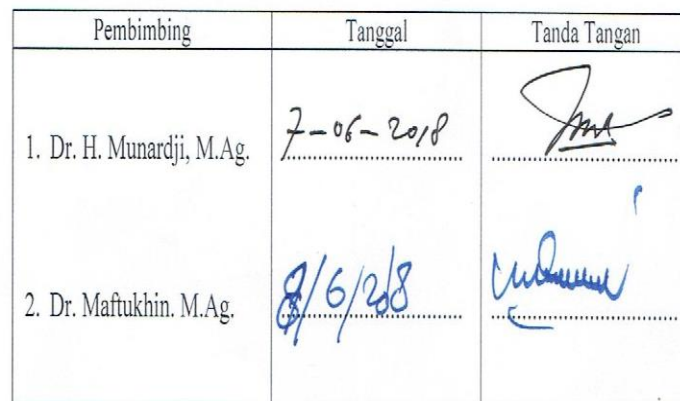 Pembimbing Tanggal Tanda Tangan
1. Dr. H. Munardji, M.Ag. 7-06-2018
2. Dr. Maftukhin. M.Ag. 8/6/2018